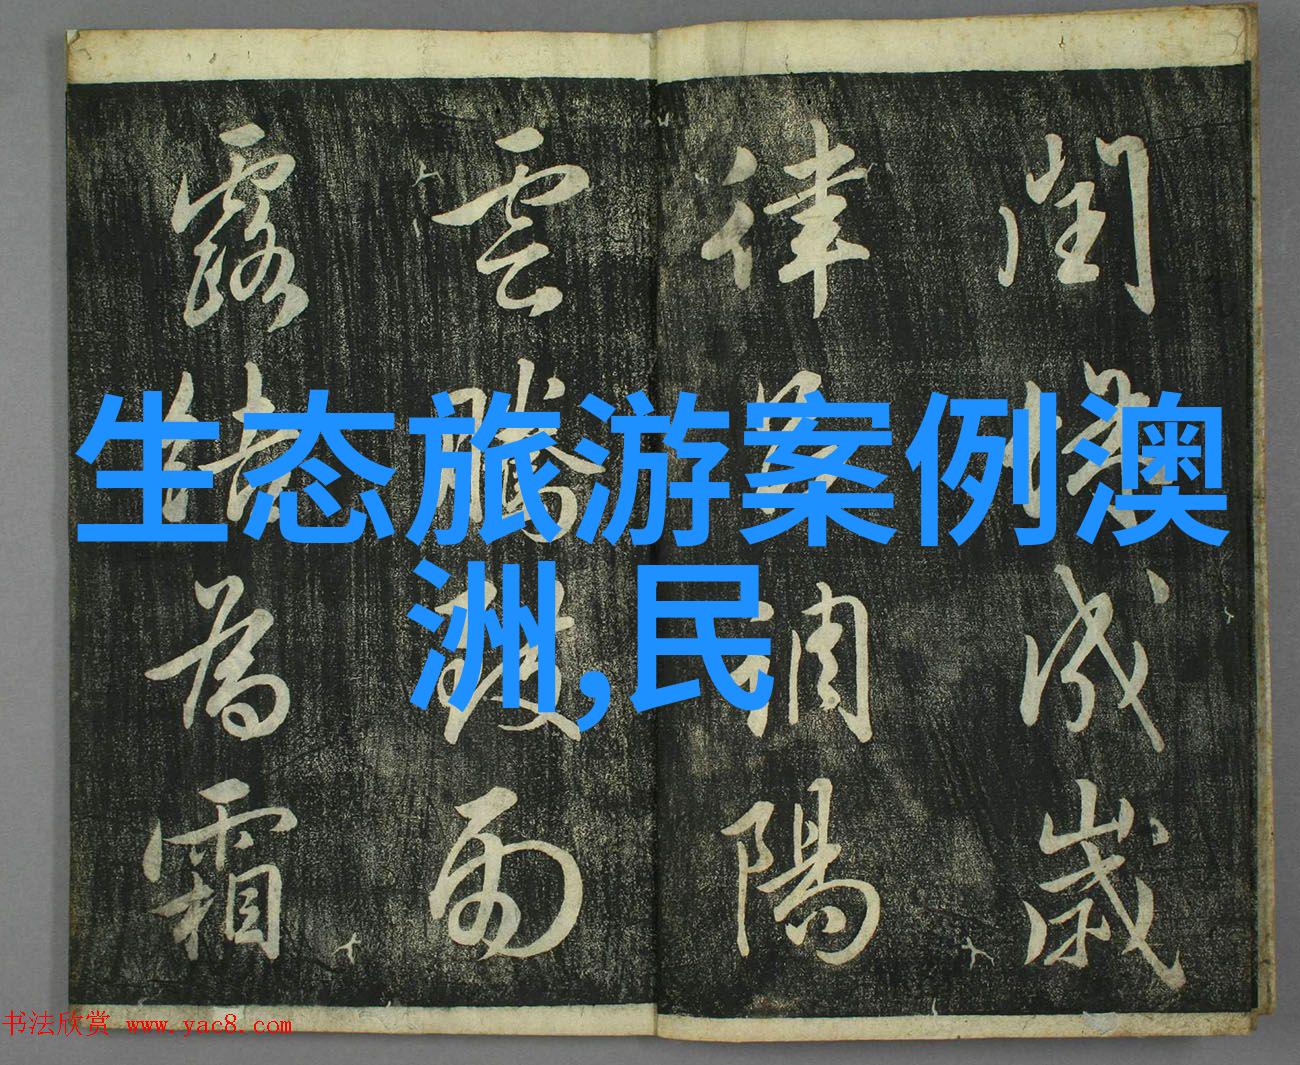 生态旅游案例澳
洲,民
閏餘成歲
律呂調陽
雲騰致雨
露結為霜
书法欣赏 www.yac8.com